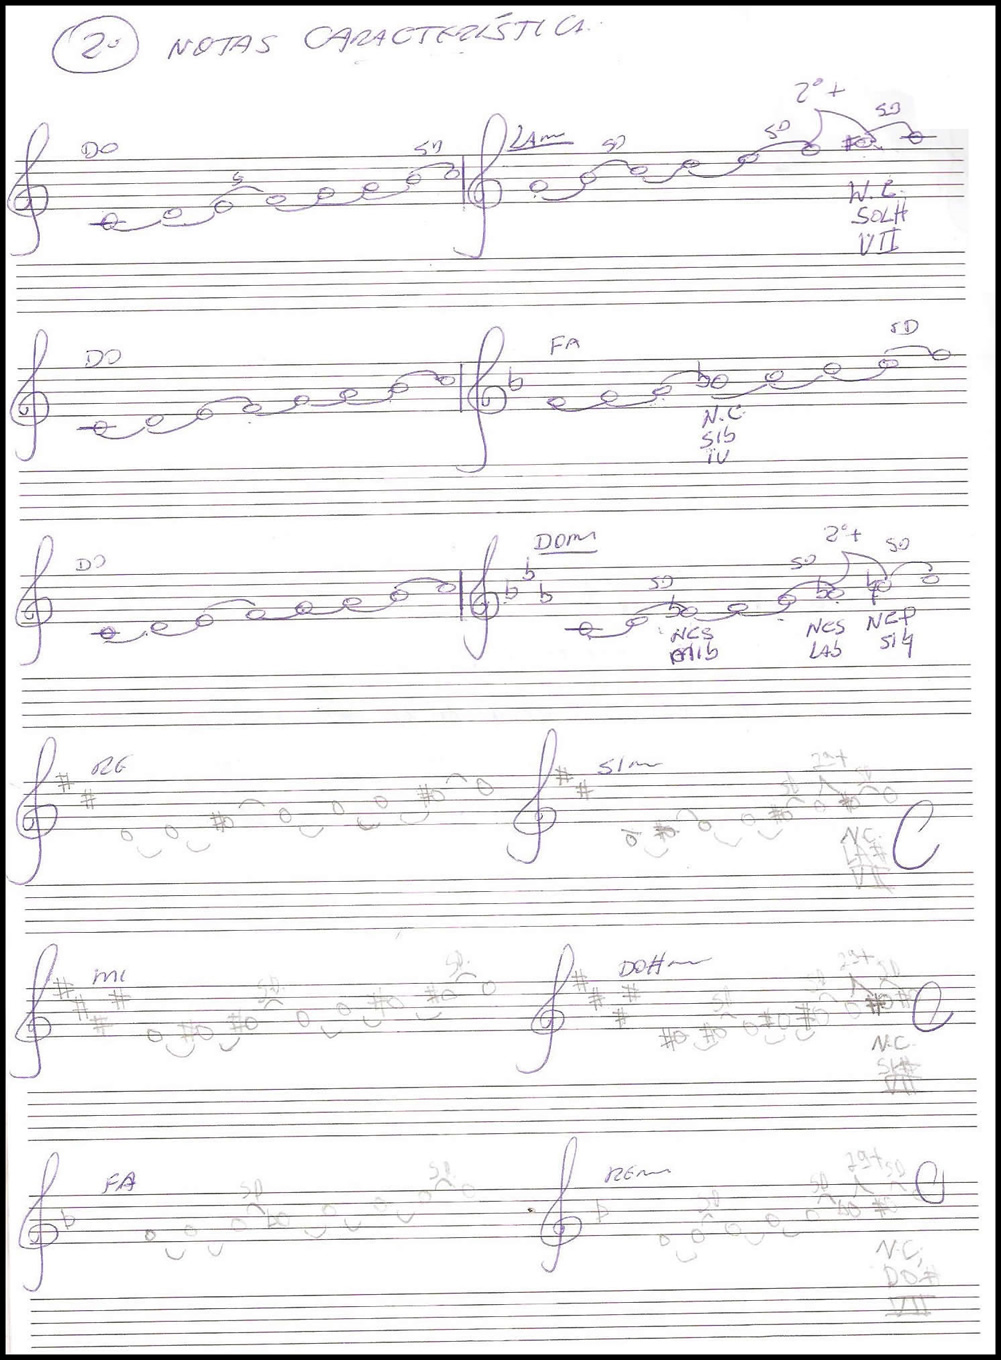 2º NOTAS CARACTERÍSTICA.
DO S SD LAm SD SD 2º+ SD
SOL#
VII
DO FA SD
N.C.
SIb
IV
DO DOm SD SD 2º+ SD
NCS NCS NCP
LAb SI♮
RE SIm 2ª+ SD
N.C.
LA#
VII
MI SD SD. DO#m SD SD 2ª+ SD
N.C.
SI#
VII
FA SD SD REm SD SD 2ª+ SD
N.C,
DO#
VII